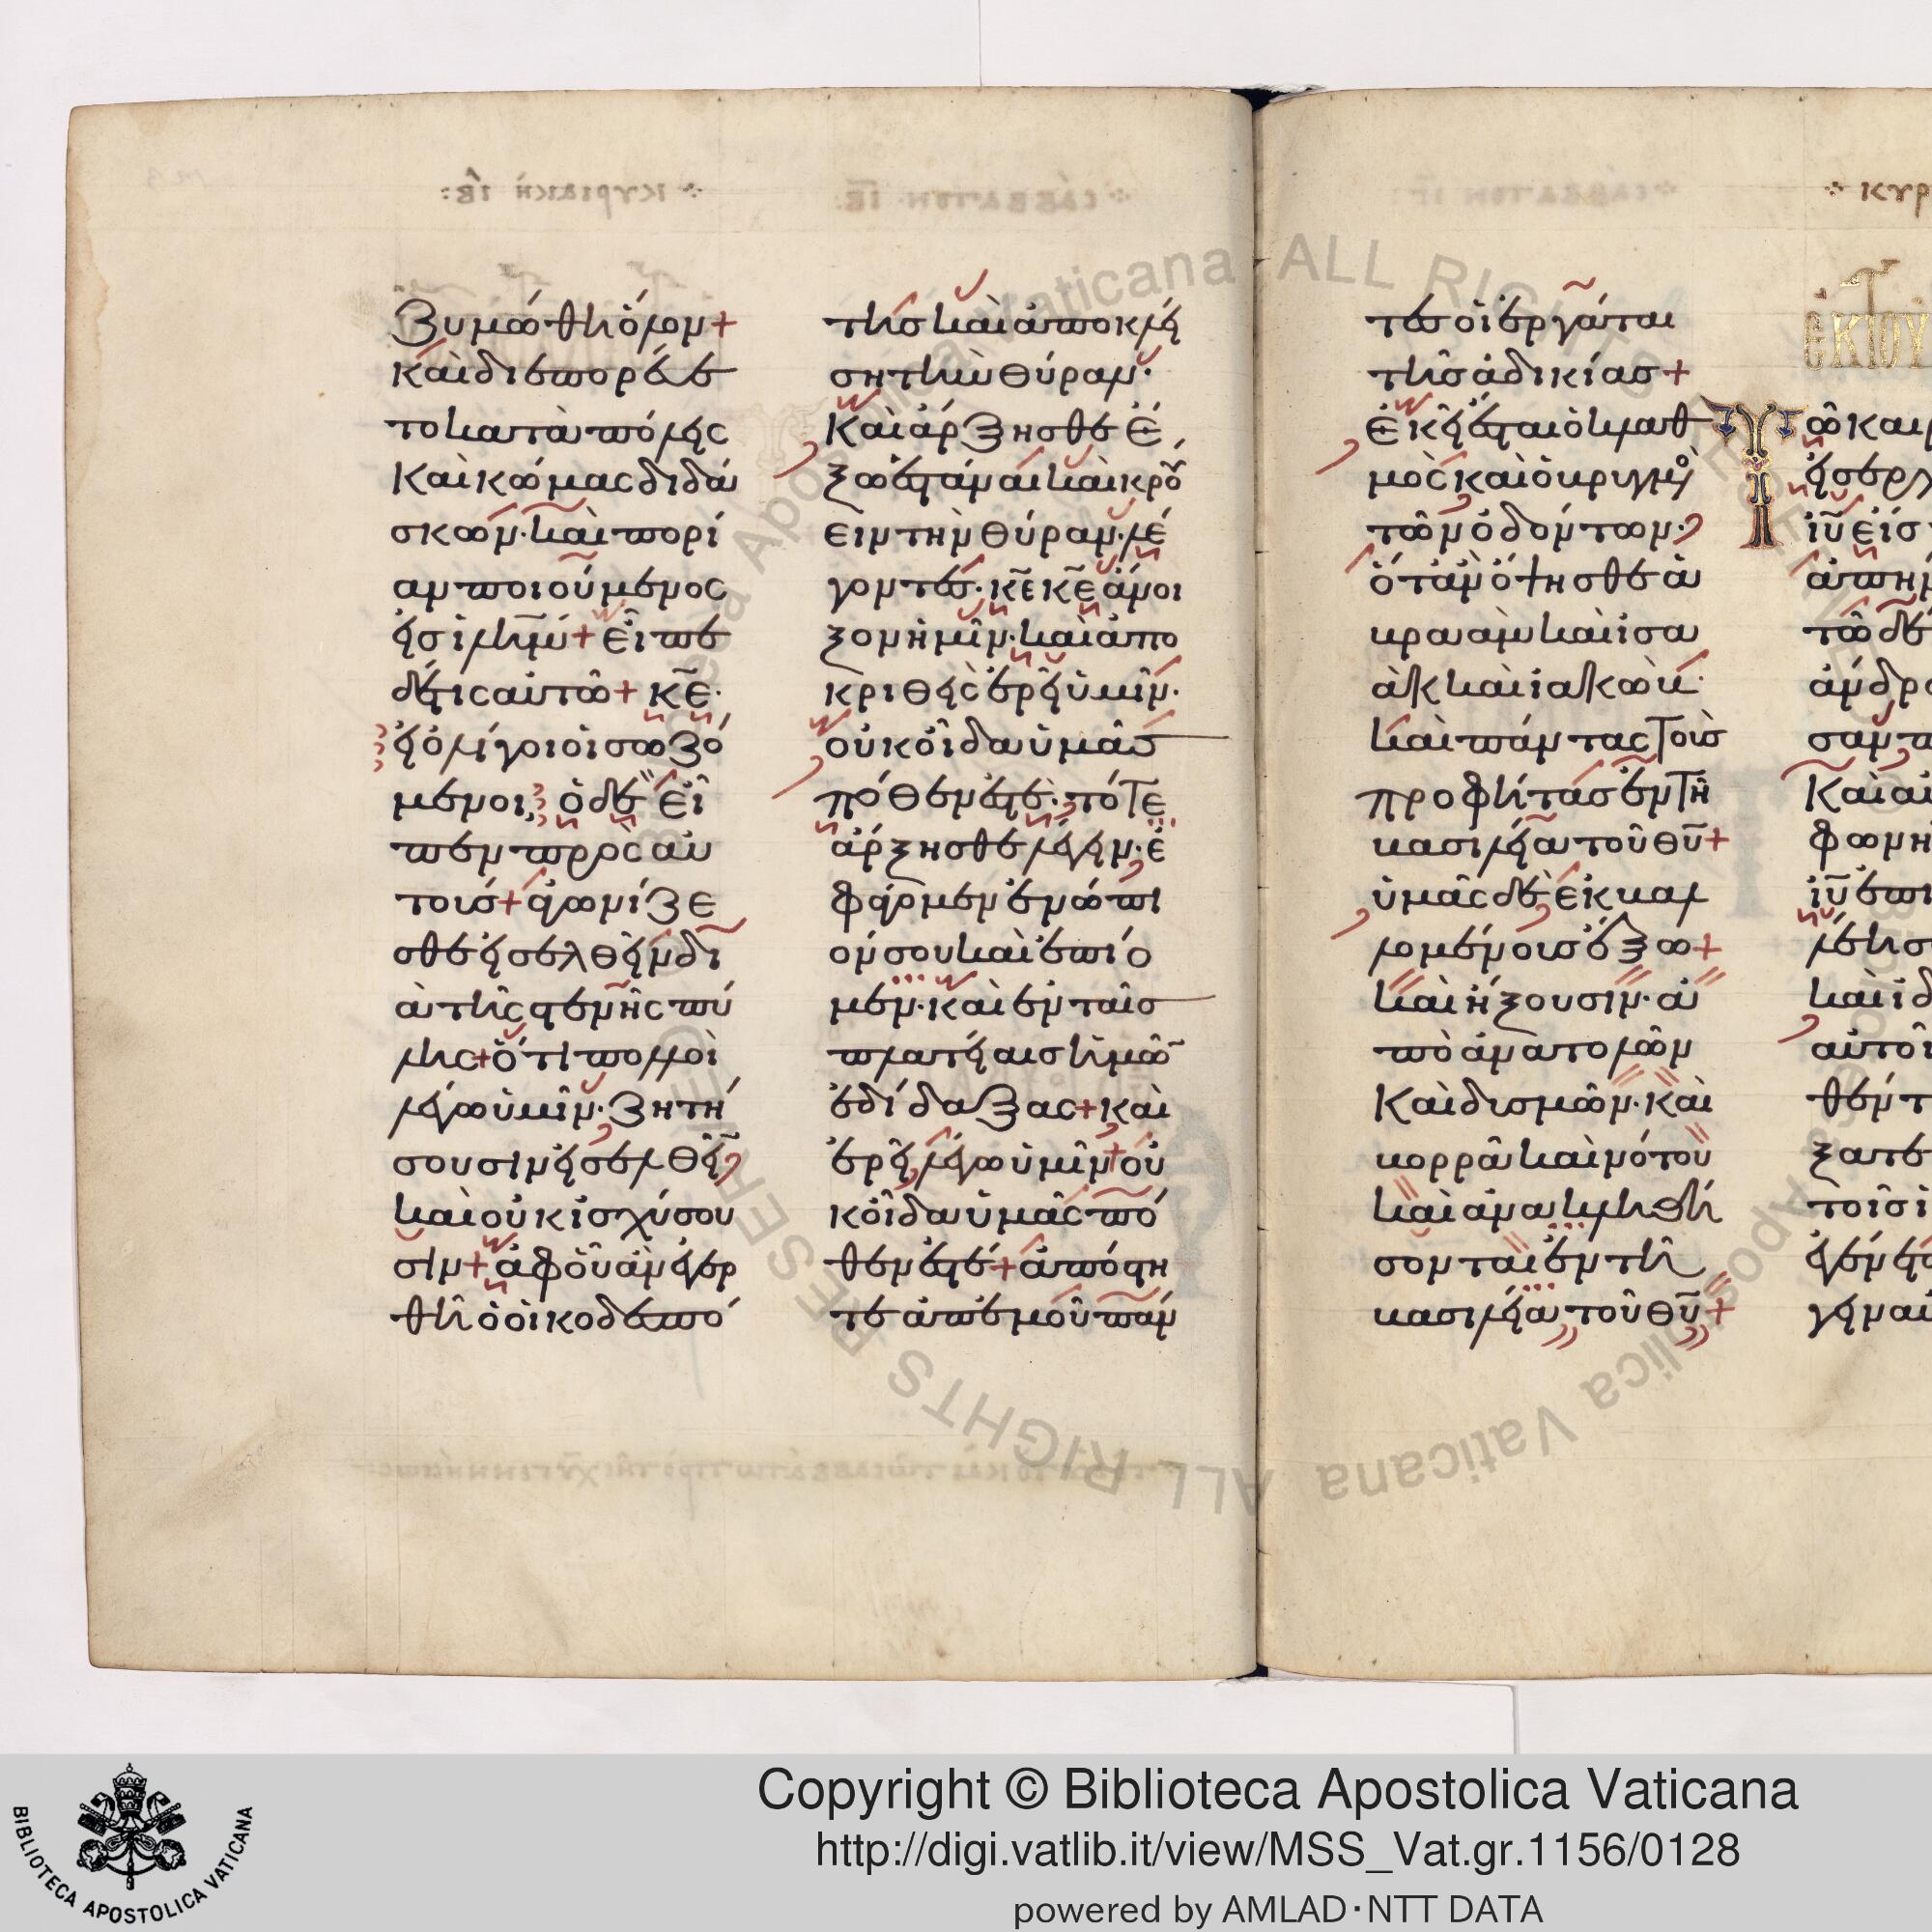 ζυμώθη ὅλον+
καὶ διεπορεύε
το κατὰ πόλεις
καὶ κώμας διδά
σκων· καὶ πορεί
αν ποιούμενος
εἰς ἱλημ+ εἶπε
δέ τις αὐτῶ+ κε·
εἰ ὀλίγοι οἱ σωζό
μενοι; ὁ δὲ εἶ
πεν πρὸς αὐ
τούς+ ἀγωνίζε
σθε εἰσελθεῖν δι
ὰ τῆς στενῆς πύ
λης+ ὅτι πολλοὶ
λέγω ὑμῖν· ζητή
σουσιν εἰσελθεῖ
καὶ οὐκ ἰσχύσου
σιν+ ἀφ οὗ ἂν ἐγερ
θῆ ὁ οἰκοδεσπό
της καὶ ἀποκλεί
ση τὴν θύραν·
Καὶ ἄρξησθε ἔ
ξω ἑστάναι καὶ κρού
ειν τὴν θύραν· λέ
γοντες· κε κε ἄνοι
ξον ἡμῖν· καὶ ἀπο
κριθεὶς ἐρεῖ ὑμῖν·
οὐκ οἶδα ὑμᾶς
πόθεν ἐστέ· τότε
ἄρξησθε λέγειν· ἐ
φάγομεν ἐνώπι
όν σου καὶ ἐπίο
μεν· καὶ ἐν ταῖς
πλατείαις ἡμῶν
ἐδίδαξας+ καὶ
ἐρεῖ, λέγω ὑμῖν+ οὐ
κ οἶδα ὑμᾶς πό
θεν ἐστέ+ ἀπόστη
τε ἀπ ἐμοῦ πάν
τες οἱ ἐργάται
τῆς ἀδικίας+
Ἐκεῖ ἔσται ὁ κλαυθ
μὸς καὶ ὁ βρυγμὸς
τῶν ὀδόντων·
ὅταν ὄψησθε ἀ
βραὰμ καὶ ἰσα
ὰκ καὶ ἰακὼβ·
καὶ πάντας τοὺς
προφήτας ἐν τῆ
βασιλεία τοῦ θυ+
ὑμᾶς δὲ ἐκβαλ
λομένους ἔξω+
καὶ ἥξουσιν· ἀ
πὸ ἀνατολῶν
Καὶ δυσμῶν· καὶ
βορρᾶ καὶ νότου
καὶ ἀνακληθή
σονται ἐν τῆ
βασιλεία τοῦ θυ+
κυρ
ἐκ τοῦ
Τῶ και
ιυ εἰς
τῶ δε
ἀνδρ
Καὶ
φωνὴ
καὶ ἰδ
τοῖς
Copyright © Biblioteca Apostolica Vaticana
http://digi.vatlib.it/view/MSS_Vat.gr.1156/0128
powered by AMLAD·NTT DATA
BIBLIOTECA APOSTOLICA VATICANA